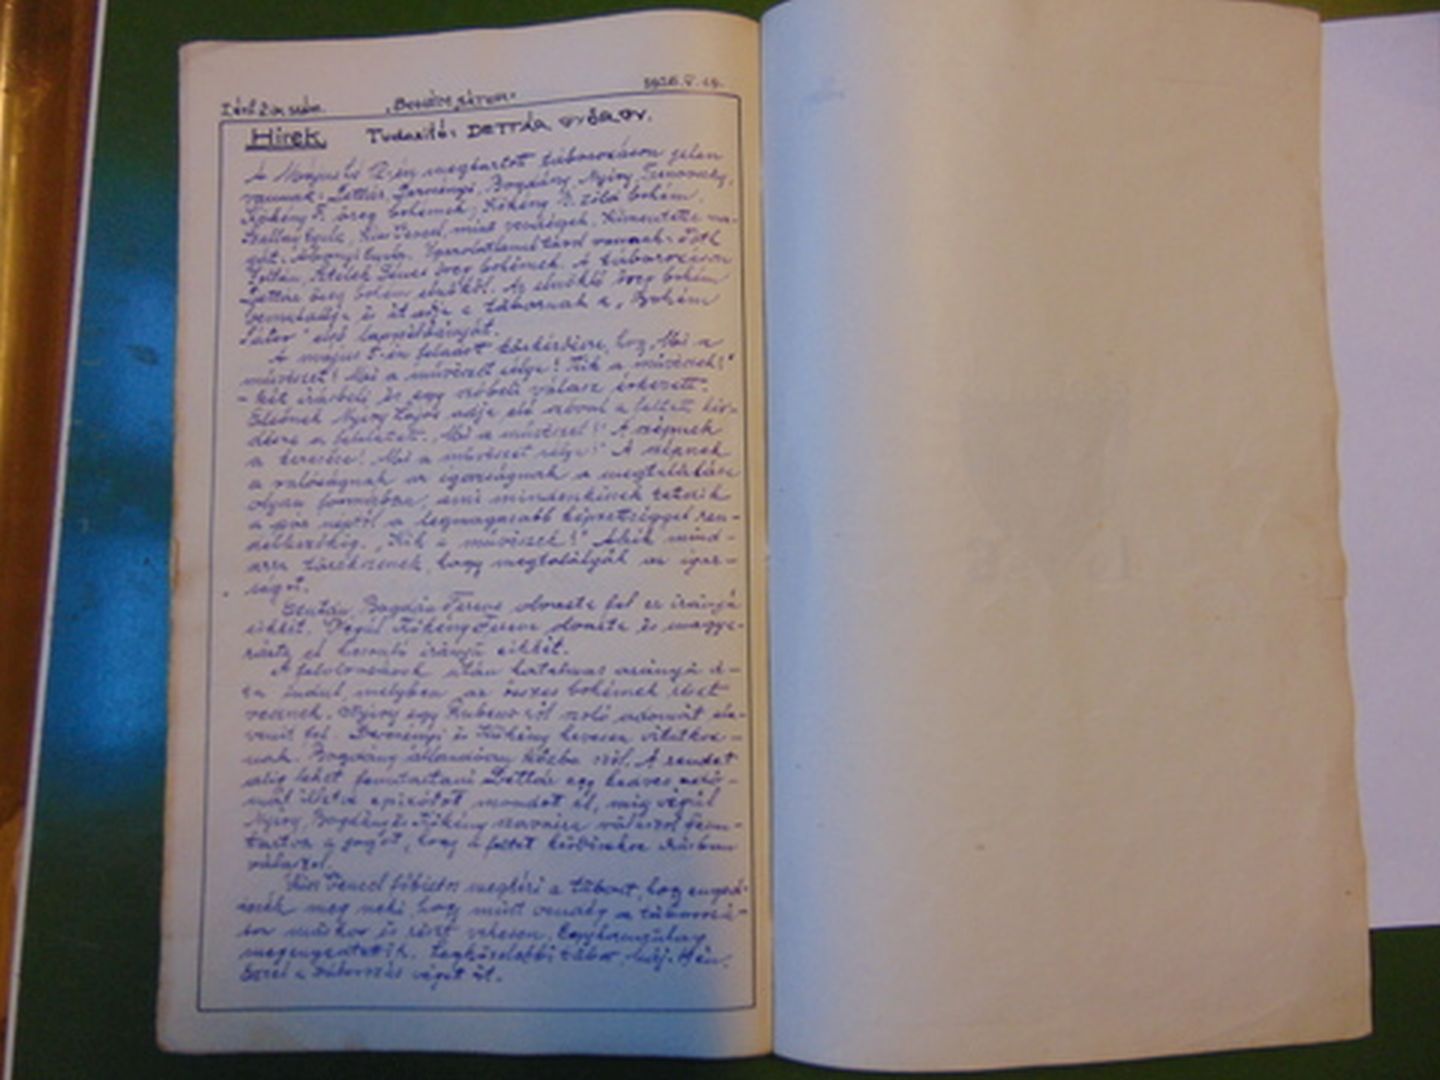 I. évf. 2-ik szám. "Bohém Sátor" 1926. V. 19.
Hírek. Tudósító: DETTÁR GYÖRGY.
A Május hó 12-én megtartott táborozáson jelen
vannak: Dettár, Derényi, Bogdány, Nyiry,
Kökény F. öreg bohémek, Kökény B. zöld bohém.
Gyula, Kiss Vencel, mint vendégek. Kimentette ma-
gát: Igazolatlanul távol vannak: Tóth
Zoltán, öreg bohémek. A táborozáson
Dettár öreg bohém elnököl. Az elnöklő öreg bohém
bemutatja és át adja a tábornak a "Bohém
Sátor" első lappéldányát.
A május 5-én feladott körkérdésre, hog "Mi a
művészet? Mi a művészet célja? Kik a művészek?"
- két irásbeli és egy szóbeli válasz érkezett.
Elsőnek Nyiry Lajos adja elő szóval a feltett kér-
désre a feleletet. "Mi a művészet?" A szépnek
a keresése! "Mi a művészet célja?" A szépnek
a valóságnak az igazságnak a megtalálása
olyan formában, ami mindenkinek tetszik
a néptől a legmagasabb képzettséggel ren-
delkezőkig. "Kik a művészek?" Akik mind-
arra törekszenek, hogy megtalálják az igaz-
ságot.
Ezután Bogdán Ferenc olvasta fel ez irányú
cikkét. Végül Kökény Ferenc olvasta és magya-
rázta el hasonló irányú cikkét.
A felolvasások után hatalmas arányú vi-
ta indul, melyben az összes bohémek részt
vesznek. Nyiry egy Rubensről szóló adomát ele-
venit fel. Derényi és Kökény hevesen vitatkoz-
nak. Bogdány állandóan közbe szól. A rendet
alig lehet fenntartani. Dettár egy kedves
illetve epizódot mondott el, mig végül
Nyiry, Bogdány és Kökény szavaira válaszol fenn-
tartva a jogot, hogy a feltett kérdésekre írásban
válaszol.
Kiss Vencel megkéri a tábort, hog enged-
jék meg neki, hog mint vendég a táborozá-
son máskor is részt vehesen. Egyhangúlag
megengedtetik. Legközelebbi tábor, máj.
Ezzel a táborozás véget ér.